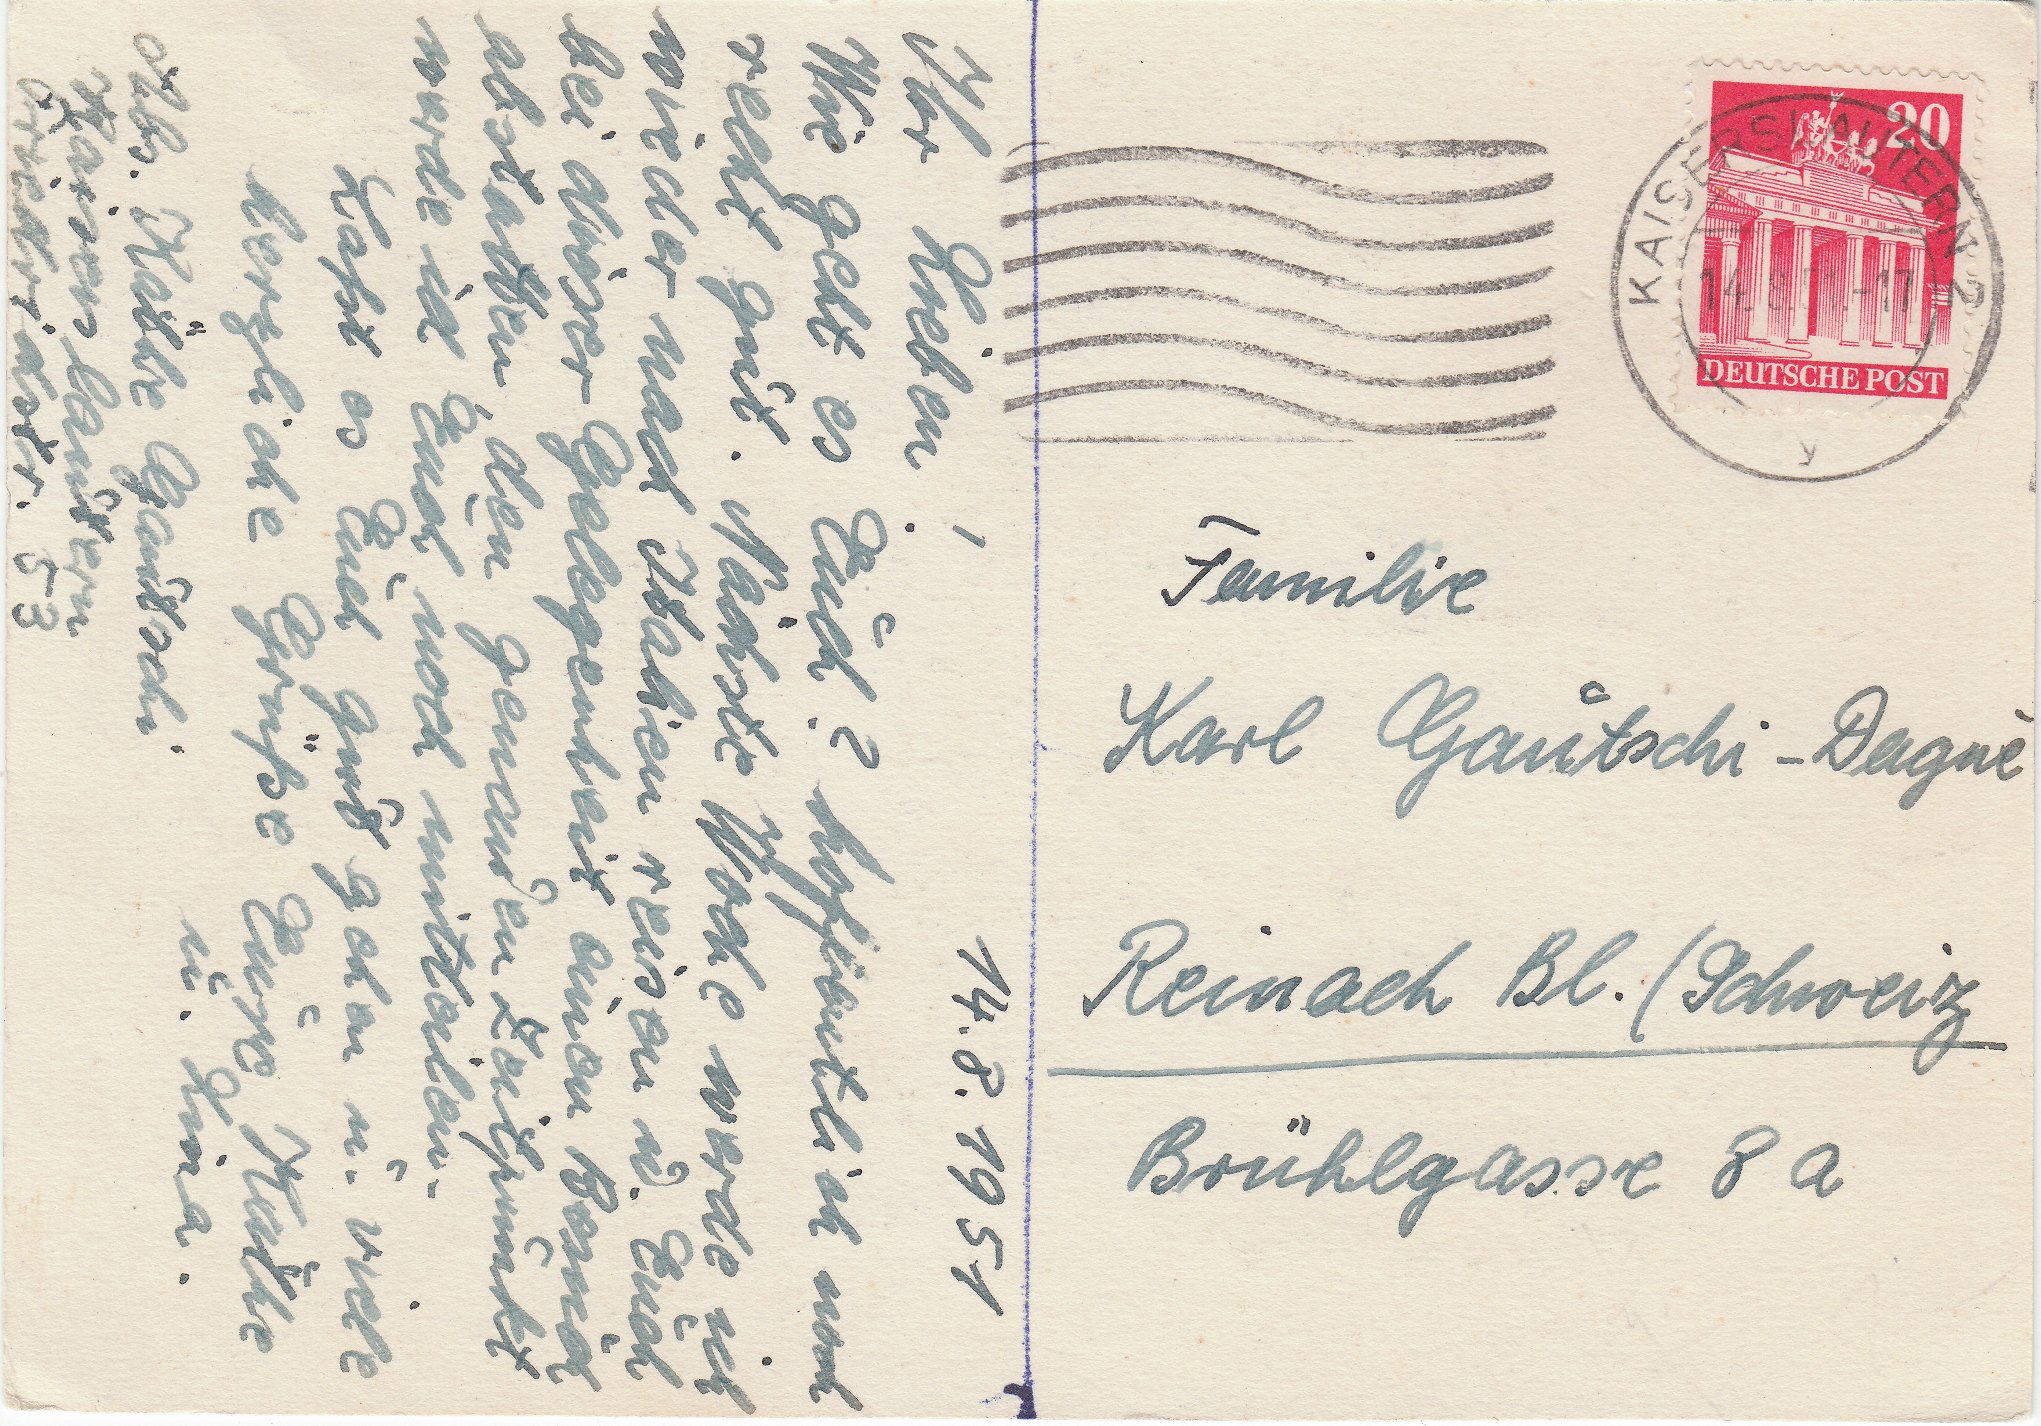 14.8.1951
Ihr Lieben!
Wie geht es Euch? Hoffentlich noch
recht gut. Nächste Woche werde ich
wieder nach Italien reisen u. Euch
bei dieser Gelegenheit einen Besuch
abstatten, den genauen Zeitpunkt
werde ich Euch noch mitteilen.
Laßt es Euch gut gehen u. viele
herzliche Grüße Eure Käthe
u. Lina.
Abs. Käthe Gautschi
Kaiserslautern
53
20
DEUTSCHE POST
KAISERSLAUTERN 2
14.8.51.-17
Familie
Karl Gautschi-Dagné
Reinach Bl. (Schweiz
Brühlgasse 8 a